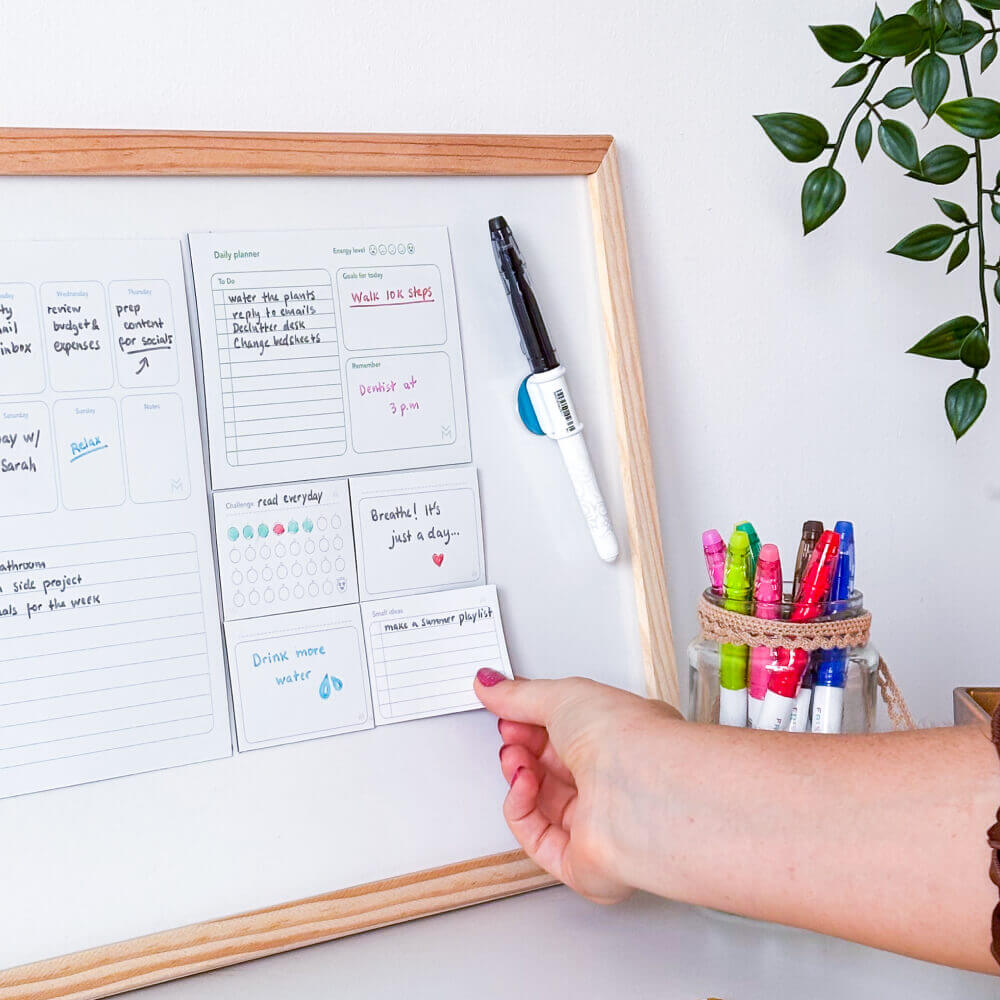 Wednesday
Thursday
review
budget &
expenses
prep
content
for socials
inbox
Saturday
Sunday
Notes
w/
Sarah
Relax
side project
for the week
Daily planner
Energy level
To Do
water the plants
reply to emails
Declutter desk
Change bedsheets
Goals for today
Walk 10k steps
Remember
Dentist at
3 p.m
Challenge read everyday
Breathe! It's
just a day...
Drink more
water
Small ideas
make a summer playlist